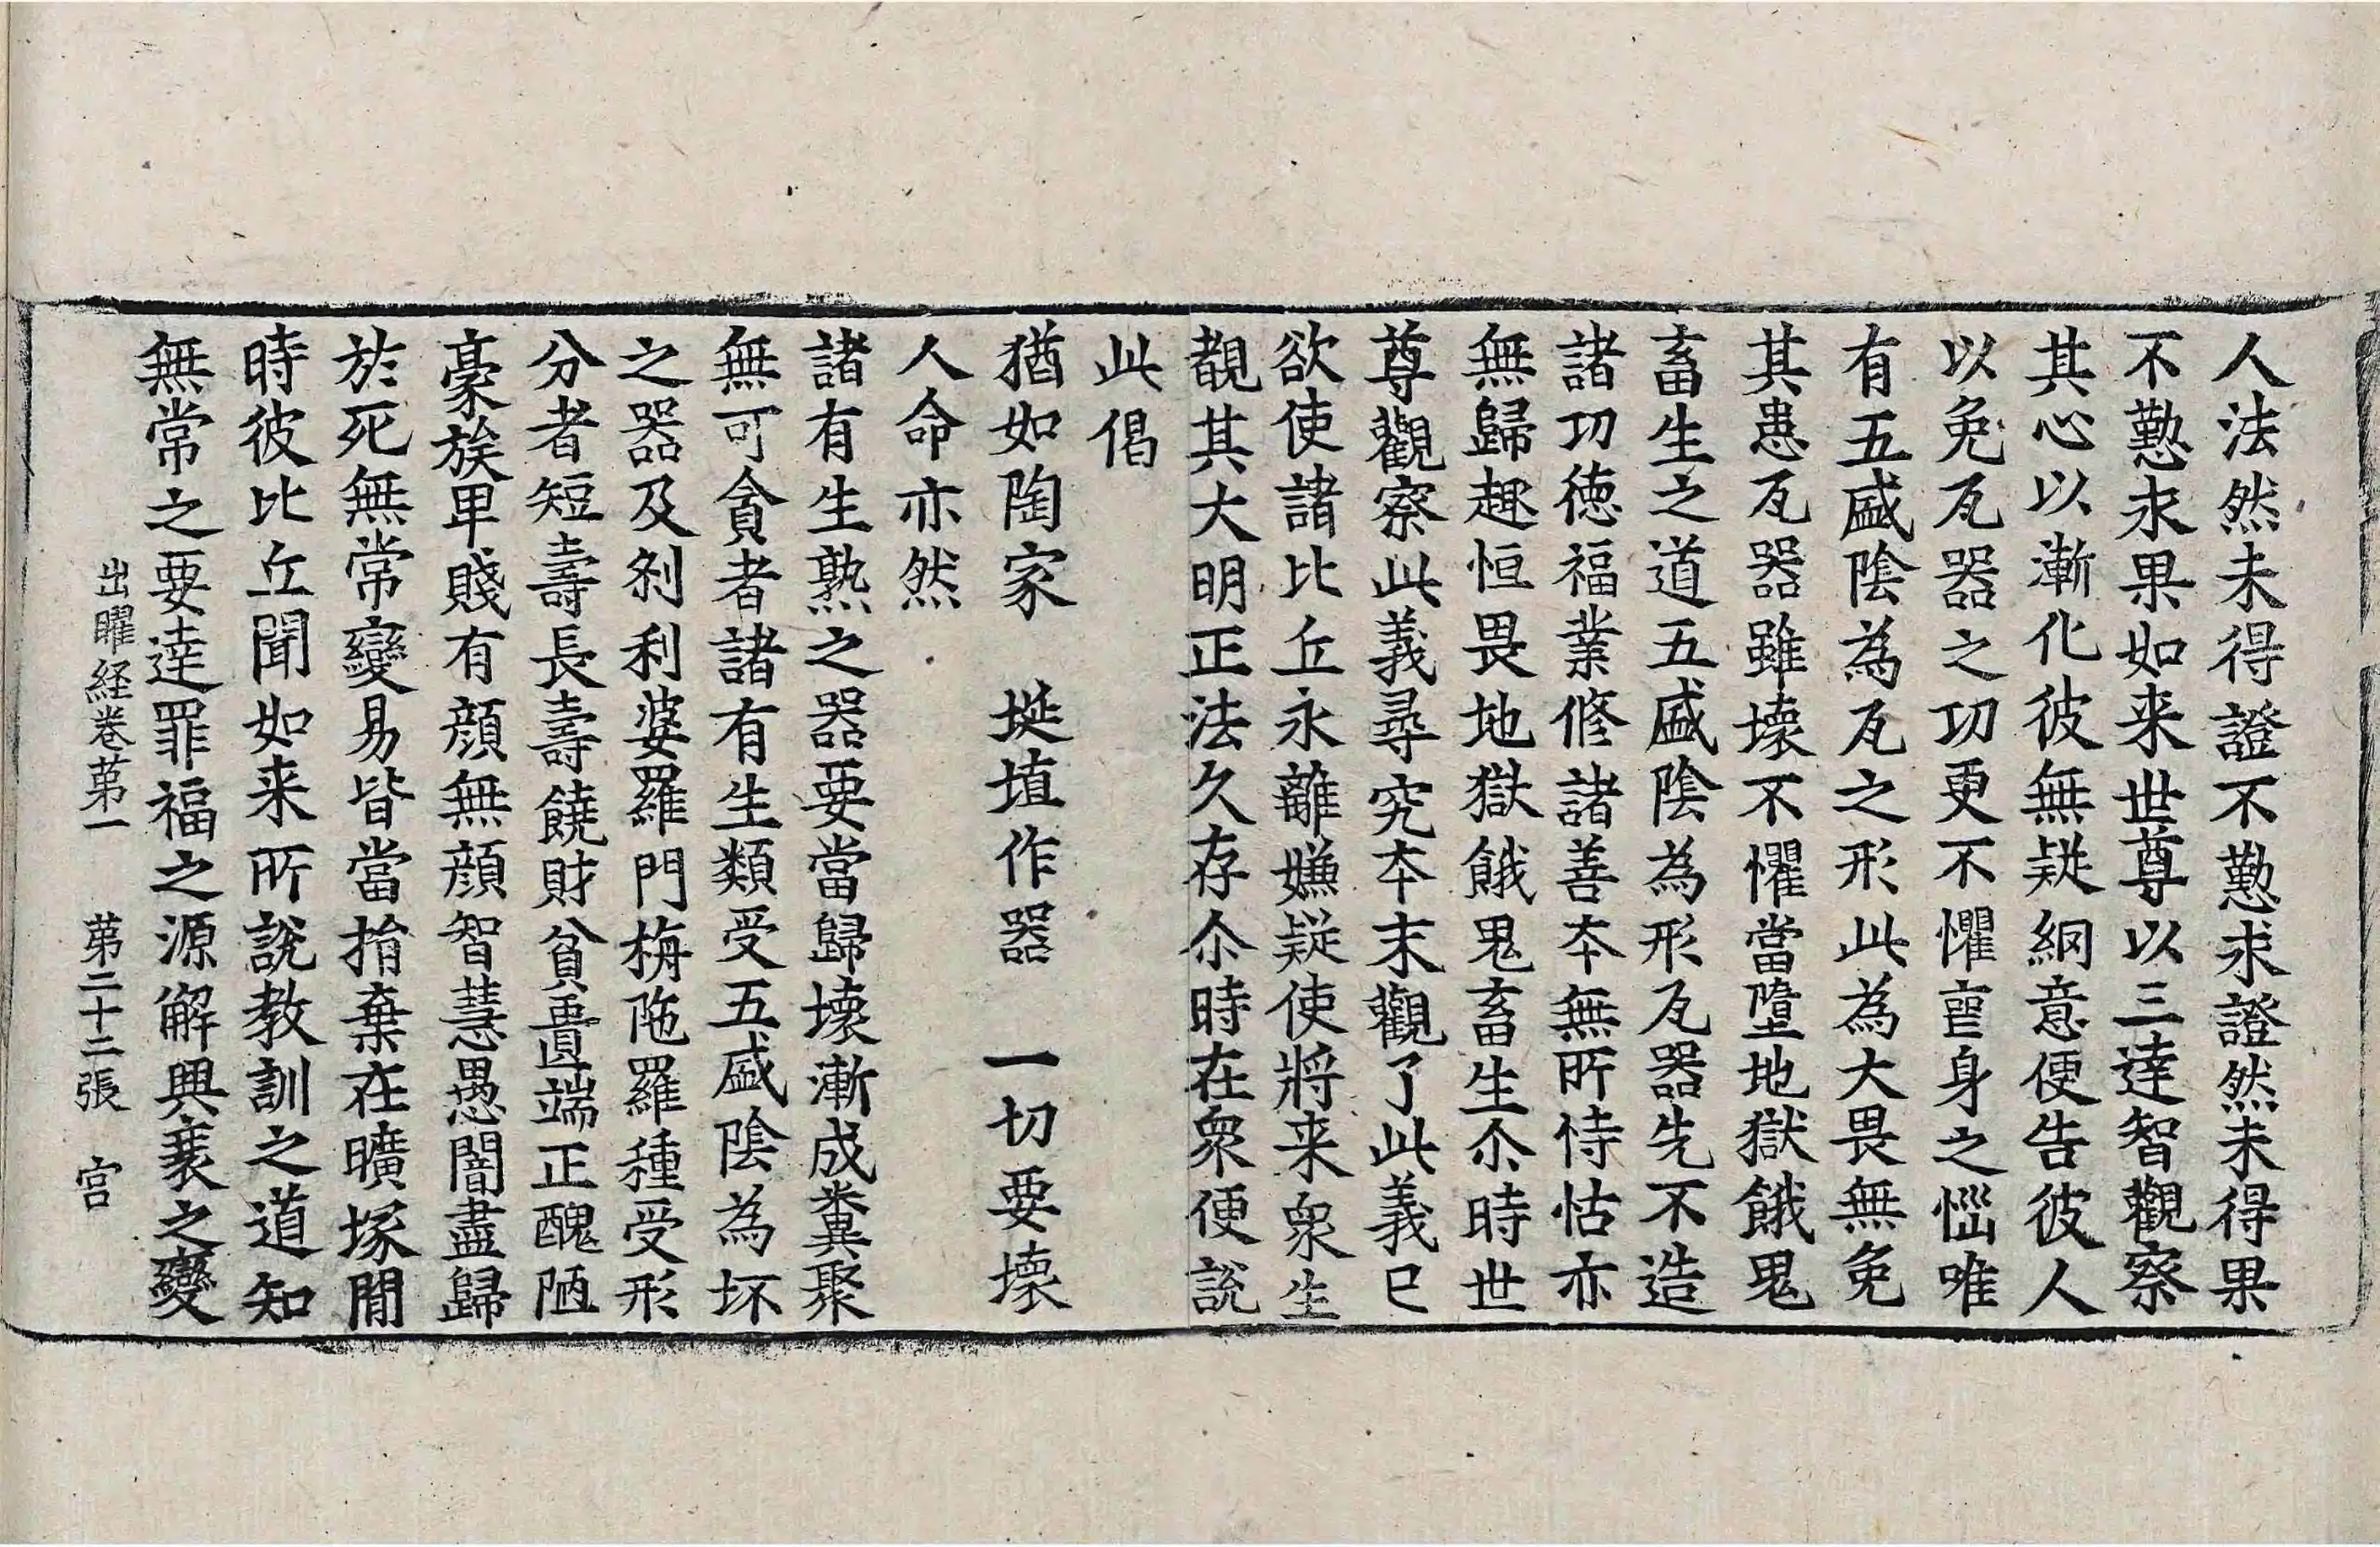 人法然未得證不懃求證然未得果
不懃求果如来世尊以三達智觀察
其心以漸化彼無疑網意便告彼人
以免瓦器之功更不懼身之惱唯
有五盛陰為瓦之形此為大畏無免
其患瓦器雖壞不懼當墮地獄餓鬼
畜生之道五盛陰為形瓦器先不造
諸功德福業修諸善本無所恃怙亦
無歸趣恒畏地獄餓鬼畜生尒時世
尊觀察此義尋究本末觀了此義已
欲使諸比丘永離嫌疑使將来衆生
覩其大明正法久存尒時在衆便說
此偈
猶如陶家　埏埴作器　一切要壞
人命亦然
諸有生熟之器要當歸壞漸成糞聚
無可貪者諸有生類受五盛陰為坏
之器及剎利婆羅門栴陁羅種受形
分者短壽長壽饒財貧匱端正醜陋
豪族卑賤有顔無顔智慧愚闇盡歸
於死無常變易皆當捐棄在曠塚間
時彼比丘聞如来所說教訓之道知
無常之要達罪福之源解興衰之變
出曜経卷苐一　苐二十二張　宫